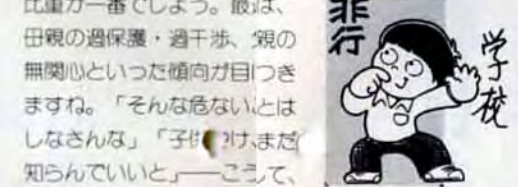 比重が一番でしょう。最は、
母親の過保護・過干渉、親の
無関心といった傾向が目につき
ますね。「そんな危ないとは
しなさんな」「子け、まだ
知らんでいいと」――こうして、
非行
学校